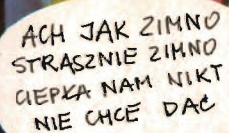 ACH JAK ZIMNO
STRASZNIE ZIMNO
CIEPŁA NAM NIKT
NIE CHCE DAĆ